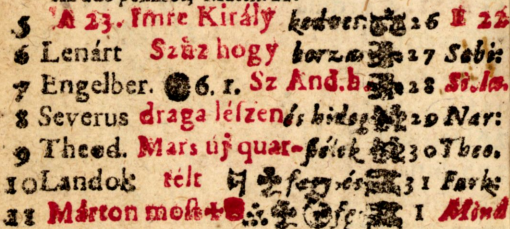 5 A 23. Imre Király kedves. 26 E 22
6 Lenárt Száz hogy borzas 27 Sabi:
7 Engelber. 6. 1. Sz And. h. 28 Si.
8 Severus draga lészen és hideg 29 Nar:
9 Theod. Mars új quar- 30 Theo.
10 Landok télt fagy és 31 Fark:
11 Márton most 1 Mind